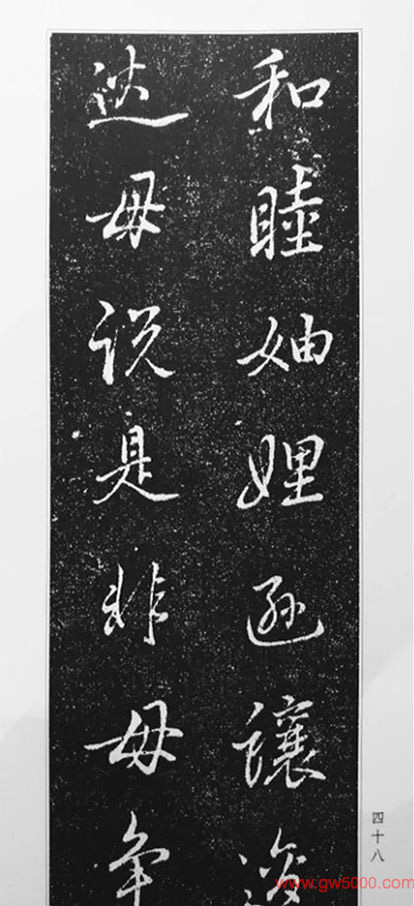 和睦妯娌遜讓
毋説是非毋争
四十八
www.gw5000.com